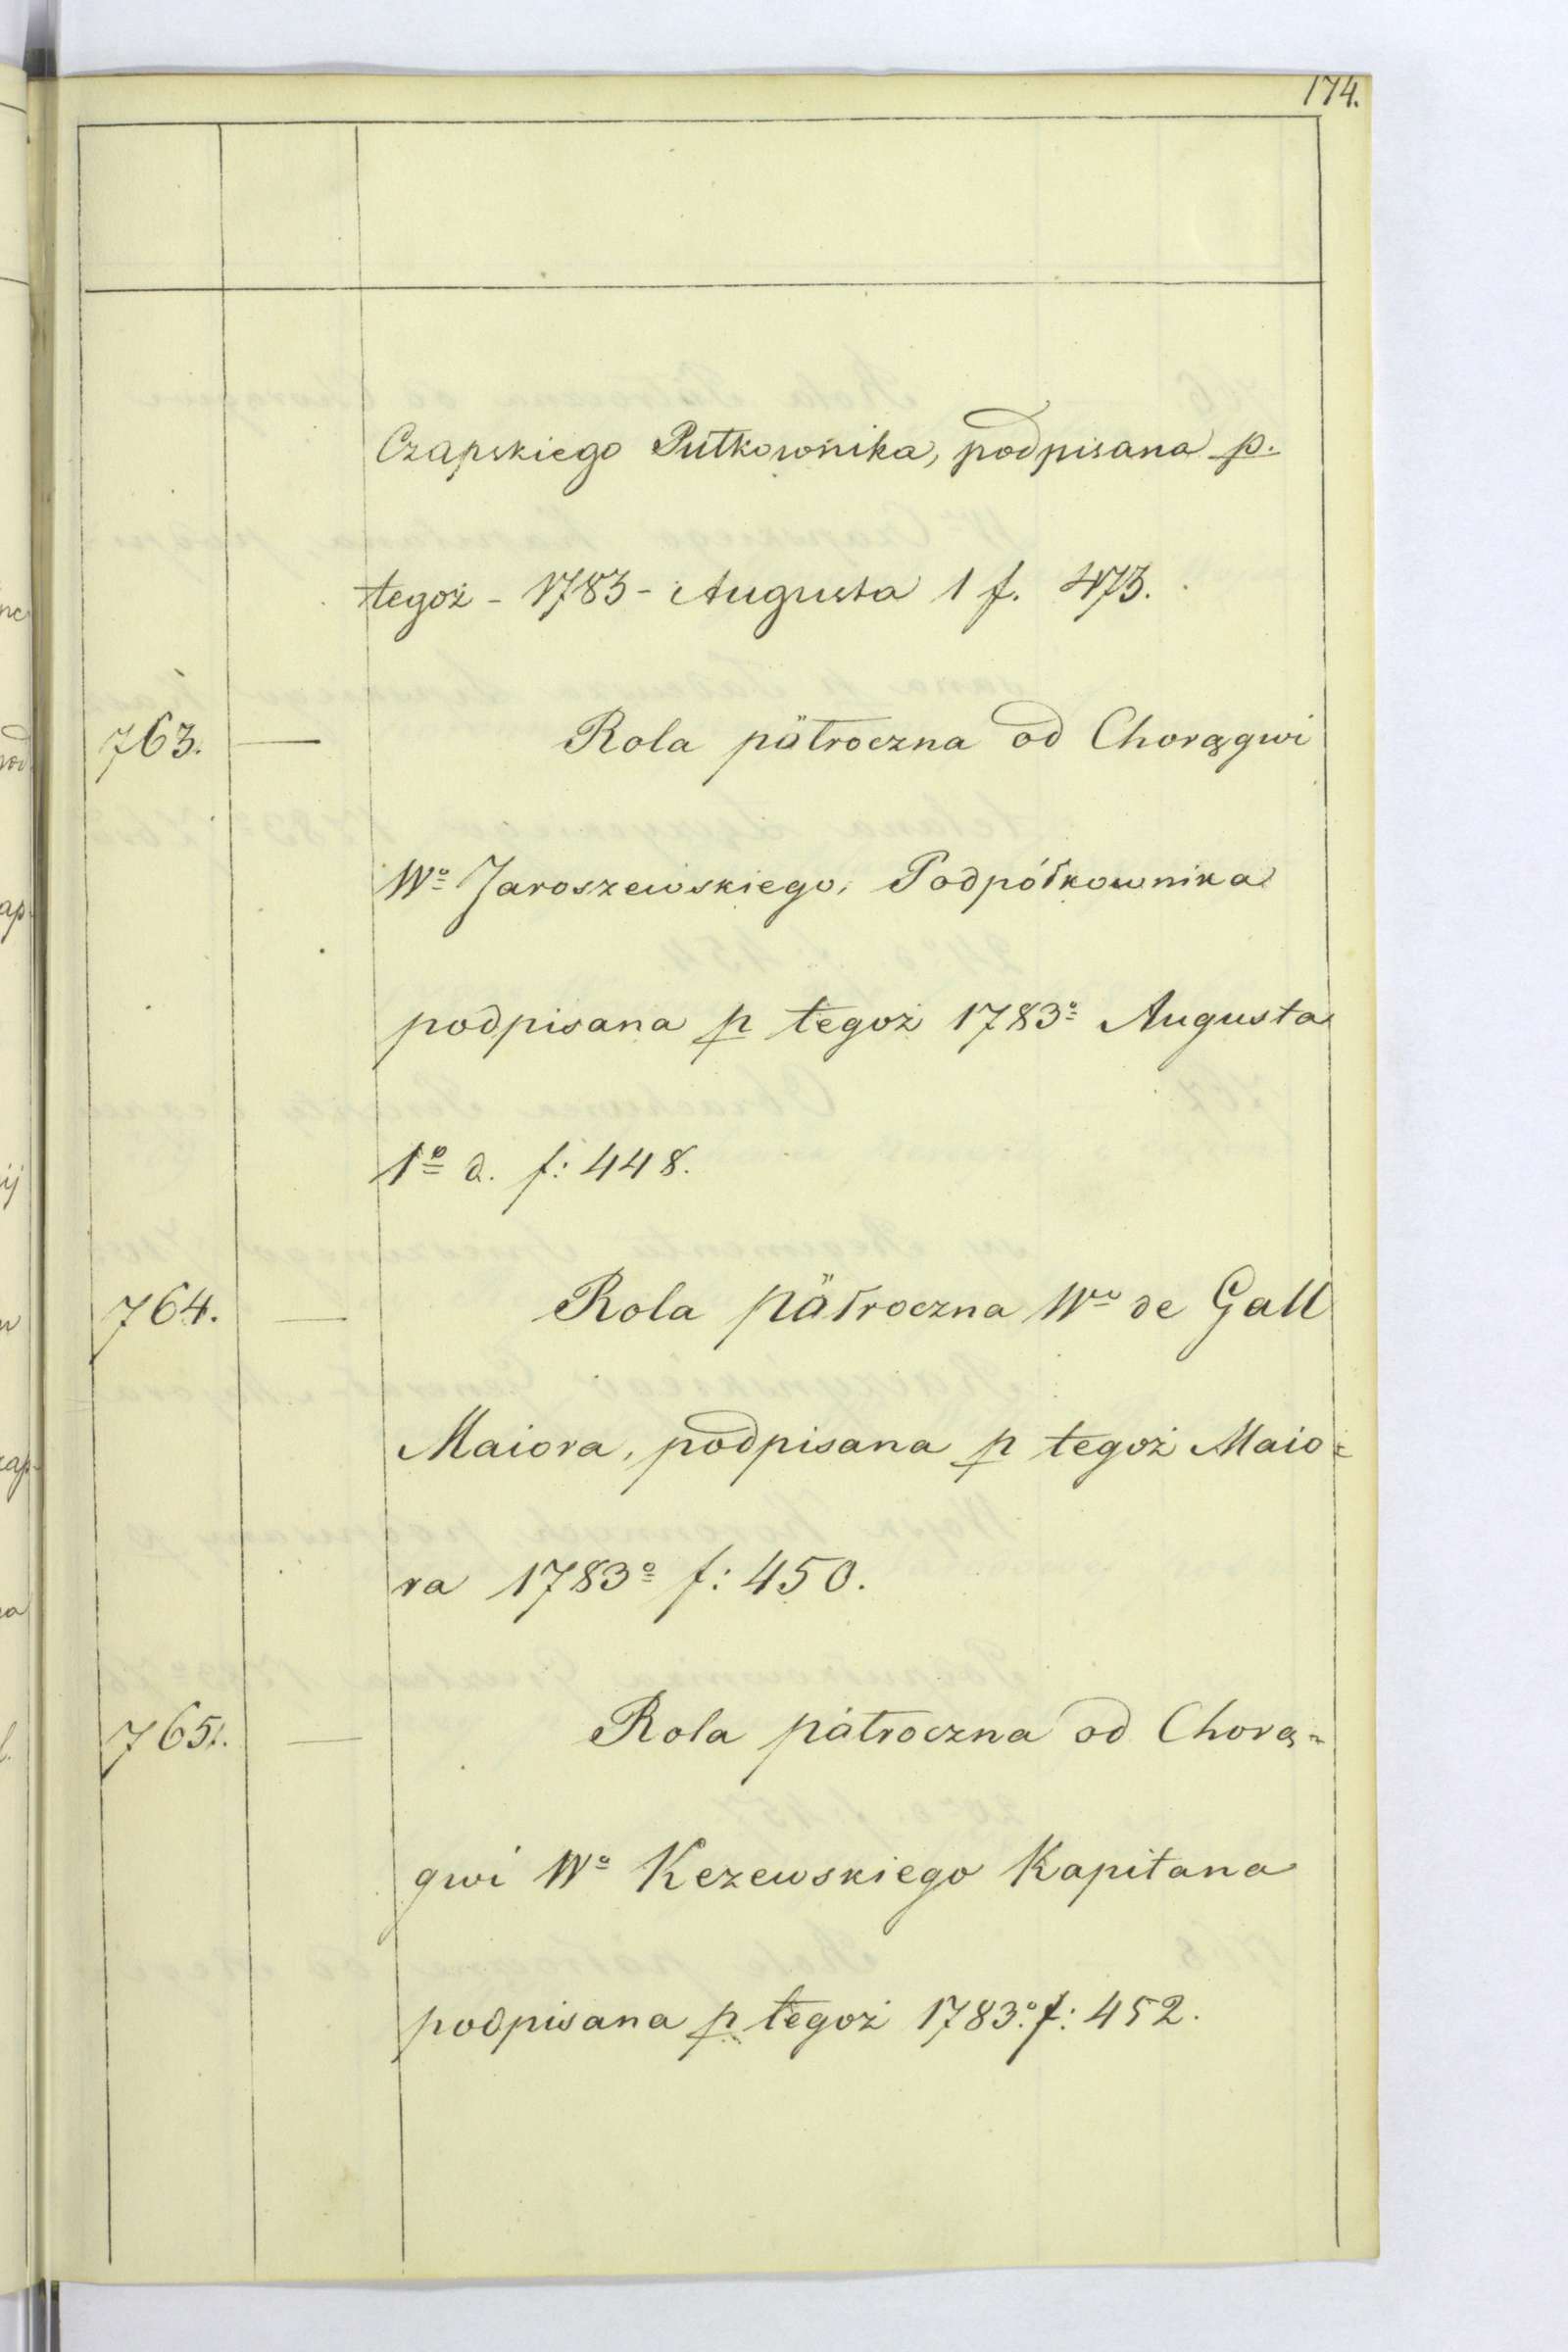 174.
Czapskiego Pułkownika, podpisana p.
tegoż - 1783 - Augusta 1 f. 473.
763. — Rola pätroczna od Chorągwi
Wº Jaroszewskiego, Podpółkownika
podpisana p tegoż 1783º Augusta
1º d. f: 448.
764. — Rola pätroczna Wº de Gall
Maiora, podpisana p tegoż Maio=
ra 1783º f: 450.
765. — Rola pátroczna od Chorą=
gwi Wº Kezewskiego Kapitana
podpisana p tegoż 1783º f: 452.